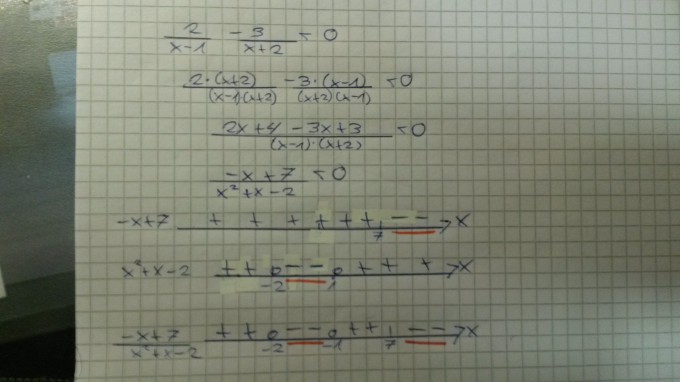 2/x-1 - 3/x+2 < 0
2·(x+2)/(x-1)(x+2) - 3·(x-1)/(x+2)(x-1) < 0
2x+4-3x+3/(x-1)·(x+2) < 0
-x+7/x²+x-2 < 0
-x+7 + + + + + + - - x
7
x²+x-2 + + o - - o + + + x
-2 1
-x+7/x²+x-2 + + o - - o + + - - x
-2 -1 7